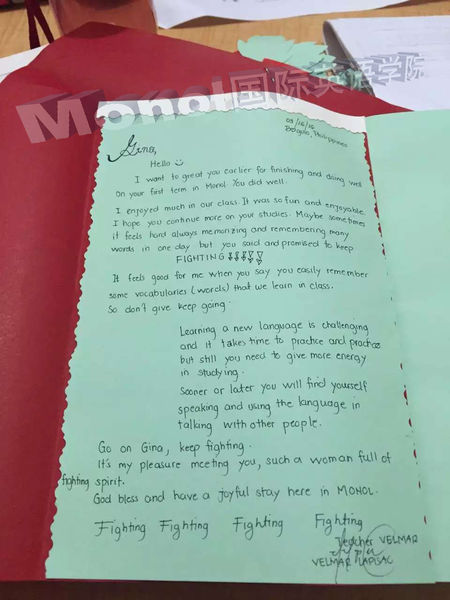 Monol国际英语学院
03/16/16
Baguio, Philippines
Gina,
Hello
I want to great you earlier for finishing and doing well
on your first term in Monol. You did well.
I enjoyed much in our class. It was so fun and enjoyable.
I hope you continue more on your studies. Maybe sometimes
it feels hard always memorizing and remembering many
words in one day but you said and promised to keep
FIGHTING!!!!!
It feels good for me when you say you easily remember
some vocabularies (words) that we learn in class.
So don't give keep going.
Learning a new language is challenging
and it takes time to practice and practice
but still you need to give more energy
in studying.
Sooner or later you will find yourself
speaking and using the language in
talking with other people.
Go on Gina, keep fighting.
It's my pleasure meeting you, such a woman full of
fighting spirit.
God bless and have a joyful stay here in MONOL.
Fighting Fighting Fighting Fighting
Teacher VELMAR
VELMAR LAPISAC